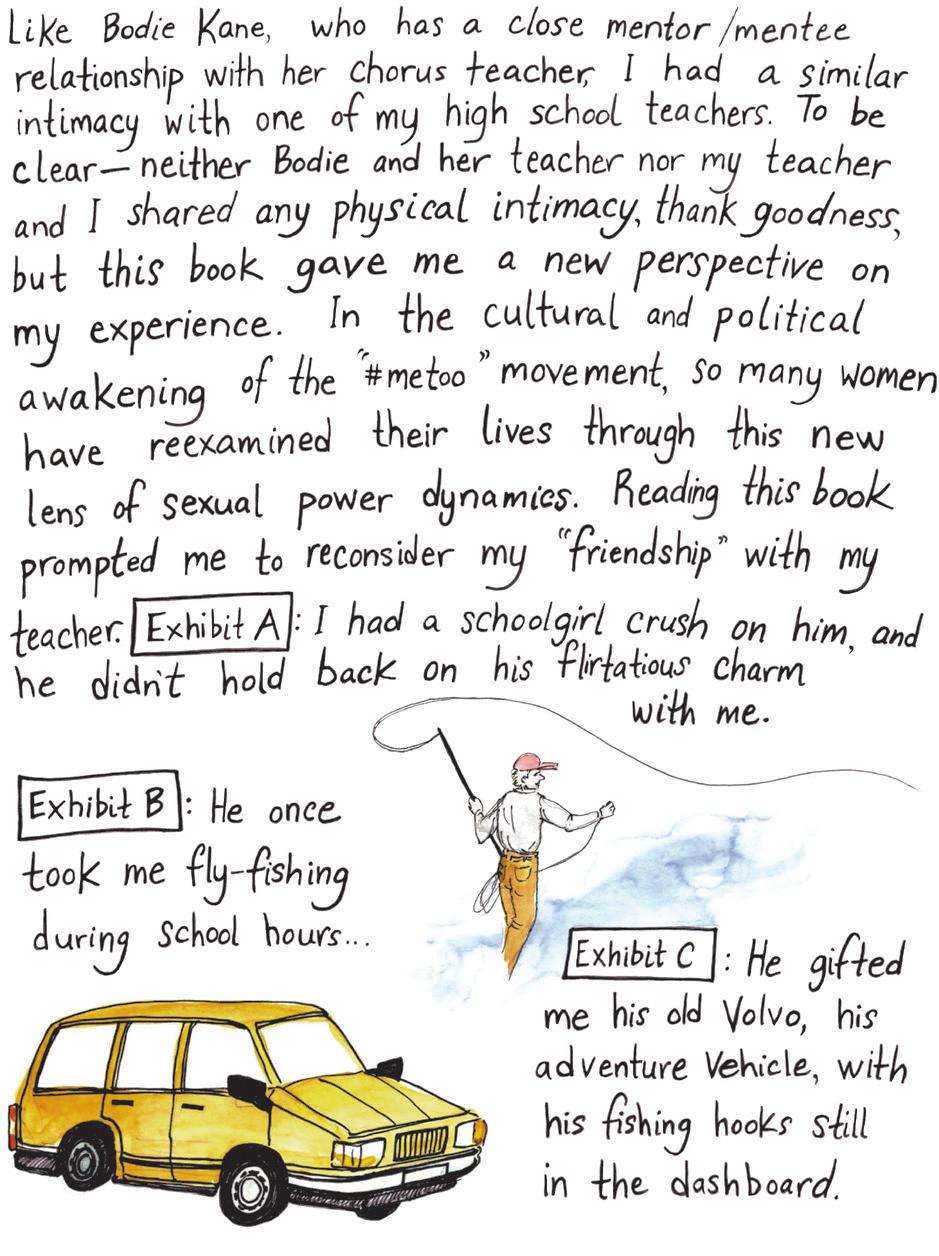 Like Bodie Kane, who has a close mentor/mentee
relationship with her chorus teacher, I had a similar
intimacy with one of my high school teachers. To be
clear—neither Bodie and her teacher nor my teacher
and I shared any physical intimacy, thank goodness,
but this book gave me a new perspective on
my experience. In the cultural and political
awakening of the "#metoo" movement, so many women
have reexamined their lives through this new
lens of sexual power dynamics. Reading this book
prompted me to reconsider my "friendship" with my
teacher. Exhibit A: I had a schoolgirl crush on him, and
he didn't hold back on his flirtatious charm
with me.
Exhibit B: He once
took me fly-fishing
during school hours...
Exhibit C: He gifted
me his old Volvo, his
adventure vehicle, with
his fishing hooks still
in the dashboard.